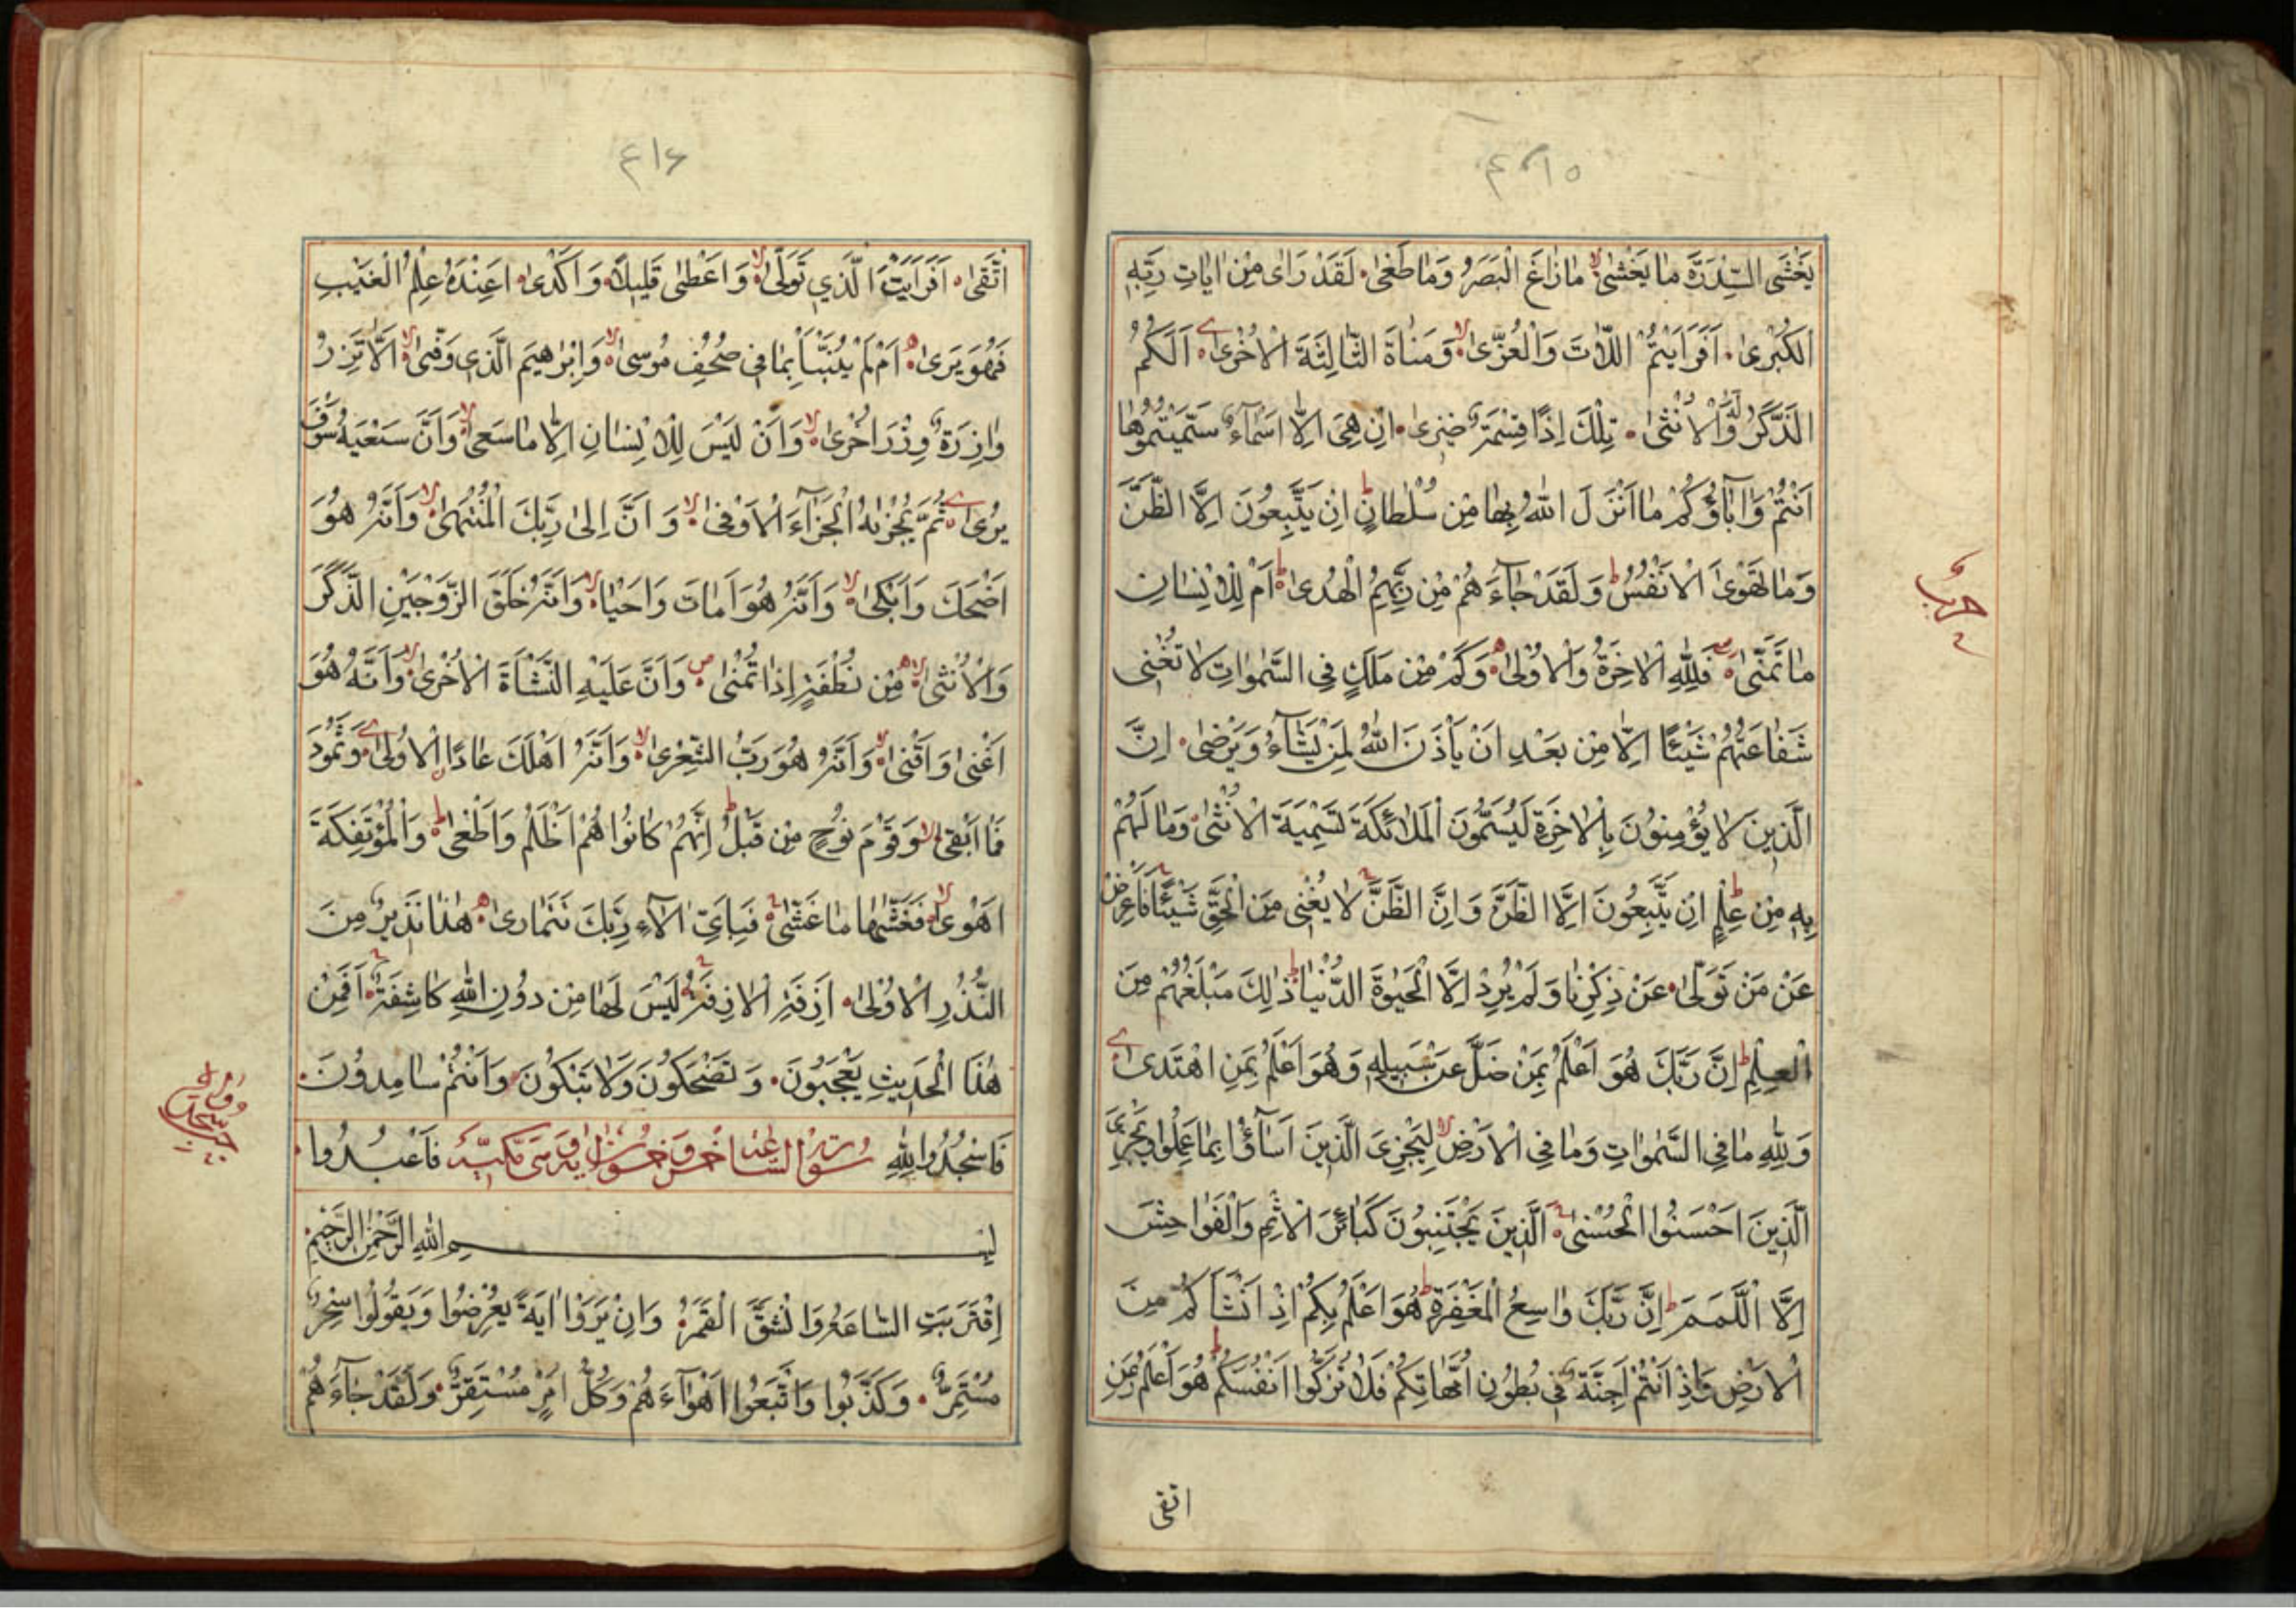 ٤١٥
يَغْشَى السِّدْرَةَ مَا يَغْشٰىۙ مَا زَاغَ الْبَصَرُ وَمَا طَغٰى لَقَدْ رَاٰى مِنْ اٰيَاتِ رَبِّهِ
الْكُبْرٰى اَفَرَاَيْتُمُ اللَّاتَ وَالْعُزّٰىۙ وَمَنٰاةَ الثَّالِثَةَ الْاُخْرٰى اَلَكُمُ
الذَّكَرُ وَلَهُ الْاُنْثٰى تِلْكَ اِذًا قِسْمَةٌ ضِيزٰى اِنْ هِىَ اِلَّا اَسْمَآءٌ سَمَّيْتُمُوهَا
اَنْتُمْ وَاٰبَآؤُكُمْ مَا اَنْزَلَ اللهُ بِهَا مِنْ سُلْطَانٍؕ اِنْ يَتَّبِعُونَ اِلَّا الظَّنَّ
وَمَا تَهْوَى الْاَنْفُسُؕ وَلَقَدْ جَآءَهُمْ مِنْ رَبِّهِمُ الْهُدٰىؕ اَمْ لِلْاِنْسَانِ
مَا تَمَنّٰى فَلِلّٰهِ الْاٰخِرَةُ وَالْاُولٰى وَكَمْ مِنْ مَلَكٍ فِى السَّمٰوَاتِ لَا تُغْنِى
شَفَاعَتُهُمْ شَيْئًا اِلَّا مِنْ بَعْدِ اَنْ يَأْذَنَ اللهُ لِمَنْ يَشَآءُ وَيَرْضٰى اِنَّ
الَّذِينَ لَا يُؤْمِنُونَ بِالْاٰخِرَةِ لَيُسَمُّونَ الْمَلٰائِكَةَ تَسْمِيَةَ الْاُنْثٰى وَمَا لَهُمْ
بِهِ مِنْ عِلْمٍؕ اِنْ يَتَّبِعُونَ اِلَّا الظَّنَّ وَاِنَّ الظَّنَّ لَا يُغْنِى مِنَ الْحَقِّ شَيْئًا فَاَعْرِضْ
عَنْ مَنْ تَوَلّٰى عَنْ ذِكْرِنَا وَلَمْ يُرِدْ اِلَّا الْحَيٰوةَ الدُّنْيَاؕ ذٰلِكَ مَبْلَغُهُمْ مِنَ
الْعِلْمِؕ اِنَّ رَبَّكَ هُوَ اَعْلَمُ بِمَنْ ضَلَّ عَنْ سَبِيلِهِ وَهُوَ اَعْلَمُ بِمَنِ اهْتَدٰى
وَلِلّٰهِ مَا فِى السَّمٰوَاتِ وَمَا فِى الْاَرْضِۙ لِيَجْزِىَ الَّذِينَ اَسَآؤُا بِمَا عَمِلُوا وَيَجْزِىَ
الَّذِينَ اَحْسَنُوا الْحُسْنٰى الَّذِينَ يَجْتَنِبُونَ كَبَائِرَ الْاِثْمِ وَالْفَوَاحِشَ
اِلَّا اللَّمَمَؕ اِنَّ رَبَّكَ وَاسِعُ الْمَغْفِرَةِؕ هُوَ اَعْلَمُ بِكُمْ اِذْ اَنْشَاَكُمْ مِنَ
الْاَرْضِ وَاِذْ اَنْتُمْ اَجِنَّةٌ فِى بُطُونِ اُمَّهَاتِكُمْ فَلَا تُزَكُّوا اَنْفُسَكُمْؕ هُوَ اَعْلَمُ بِمَنِ
اتقى
حزب
٤١٦
اتَّقٰى اَفَرَاَيْتَ الَّذِى تَوَلّٰىۙ وَاَعْطٰى قَلِيلًا وَاَكْدٰى اَعِنْدَهُ عِلْمُ الْغَيْبِ
فَهُوَ يَرٰى اَمْ لَمْ يُنَبَّأْ بِمَا فِى صُحُفِ مُوسٰىۙ وَاِبْرٰهِيمَ الَّذِى وَفّٰىۙ اَلَّا تَزِرُ
وَازِرَةٌ وِزْرَ اُخْرٰىۙ وَاَنْ لَيْسَ لِلْاِنْسَانِ اِلَّا مَا سَعٰىۙ وَاَنَّ سَعْيَهُ سَوْفَ
يُرٰى ثُمَّ يُجْزٰيهُ الْجَزَآءَ الْاَوْفٰىۙ وَاَنَّ اِلٰى رَبِّكَ الْمُنْتَهٰىۙ وَاَنَّهُ هُوَ
اَضْحَكَ وَاَبْكٰىۙ وَاَنَّهُ هُوَ اَمَاتَ وَاَحْيَاۙ وَاَنَّهُ خَلَقَ الزَّوْجَيْنِ الذَّكَرَ
وَالْاُنْثٰىۙ مِنْ نُطْفَةٍ اِذَا تُمْنٰى وَاَنَّ عَلَيْهِ النَّشْاَةَ الْاُخْرٰىۙ وَاَنَّهُ هُوَ
اَغْنٰى وَاَقْنٰىۙ وَاَنَّهُ هُوَ رَبُّ الشِّعْرٰىۙ وَاَنَّهُ اَهْلَكَ عَادًا الْاُولٰى وَثَمُودَ
فَمَا اَبْقٰىۙ وَقَوْمَ نُوحٍ مِنْ قَبْلُؕ اِنَّهُمْ كَانُوا هُمْ اَظْلَمُ وَاَطْغٰىؕ وَالْمُؤْتَفِكَةَ
اَهْوٰىۙ فَغَشّٰيهَا مَا غَشّٰى فَبِاَىِّ اٰلَآءِ رَبِّكَ تَتَمَارٰى هٰذَا نَذِيرٌ مِنَ
النُّذُرِ الْاُولٰى اَزِفَةِ الْاٰزِفَةُ لَيْسَ لَهَا مِنْ دُونِ اللهِ كَاشِفَةٌ اَفَمِنْ
هٰذَا الْحَدِيثِ يَعْجَبُونَ وَتَضْحَكُونَ وَلَا تَبْكُونَ وَاَنْتُمْ سَامِدُونَ
فَاسْجُدُوا لِلّٰهِ فَاعْبُدُوا
سورة الساعة خمس وخمسون اية وهى مكية
بسم الله الرَّحْمٰنِ الرَّحِيمِ
اِقْتَرَبَتِ السَّاعَةُ وَانْشَقَّ الْقَمَرُ وَاِنْ يَرَوْا اٰيَةً يُعْرِضُوا وَيَقُولُوا سِحْرٌ
مُسْتَمِرٌّ وَكَذَّبُوا وَاتَّبَعُوا اَهْوَآءَهُمْ وَكُلُّ اَمْرٍ مُسْتَقِرٌّ وَلَقَدْ جَآءَهُمْ